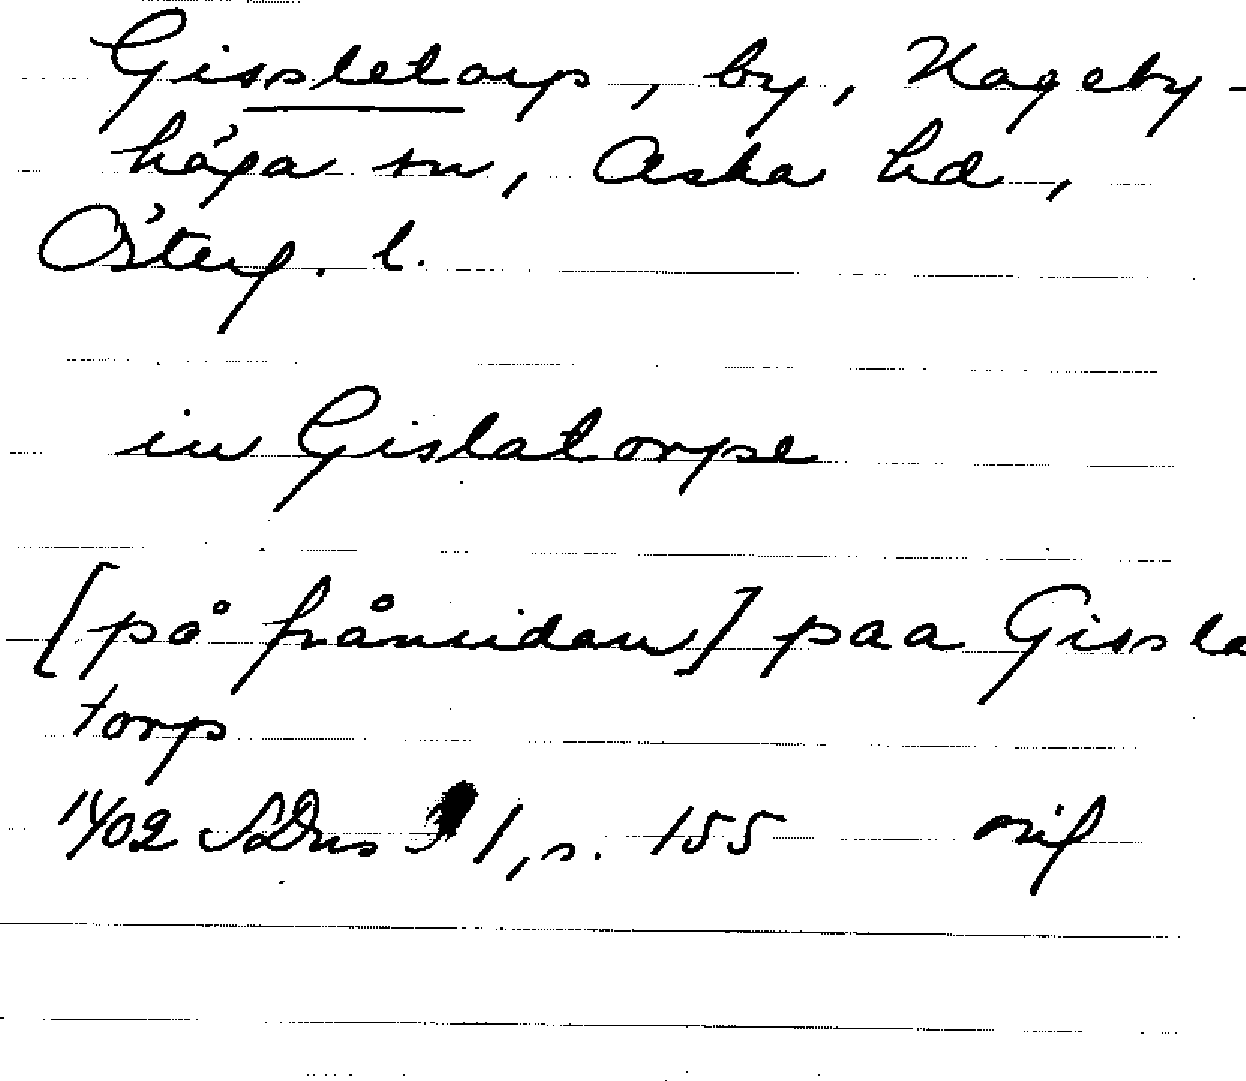 Gissletorp, by, Hageby-
höga sn, Aska hd,
Österg. l.
in Gislatorpe
[på frånsidan] paa Gissla
torp
1402 SDns 1, s. 155 orig